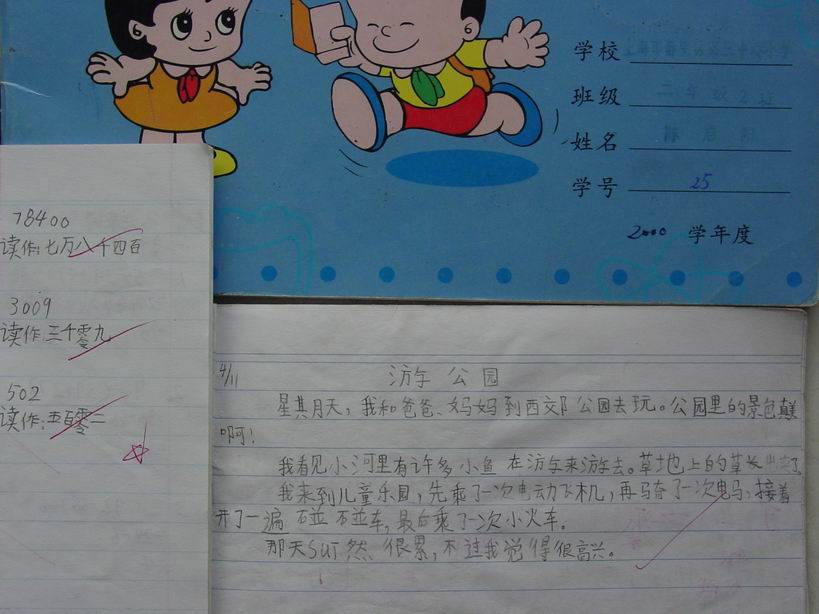 学校
班级 二年级2班
姓名
学号 25
2000 学年度
78400
读作:七万八千四百
3009
读作:三千零九
502
读作:五百零二
4/11
游公园
星其月天,我和爸爸、妈妈到西郊公园去玩。公园里的景色
啊!
我看见小河里有许多小鱼在游来游去。草地上的草长出来了
我来到儿童乐园,先乘了一次电动飞机,再骑了一次电马,接着
开了一遍碰碰车,最后乘了一次小火车。
那天sui然很累,不过我觉得很高兴。